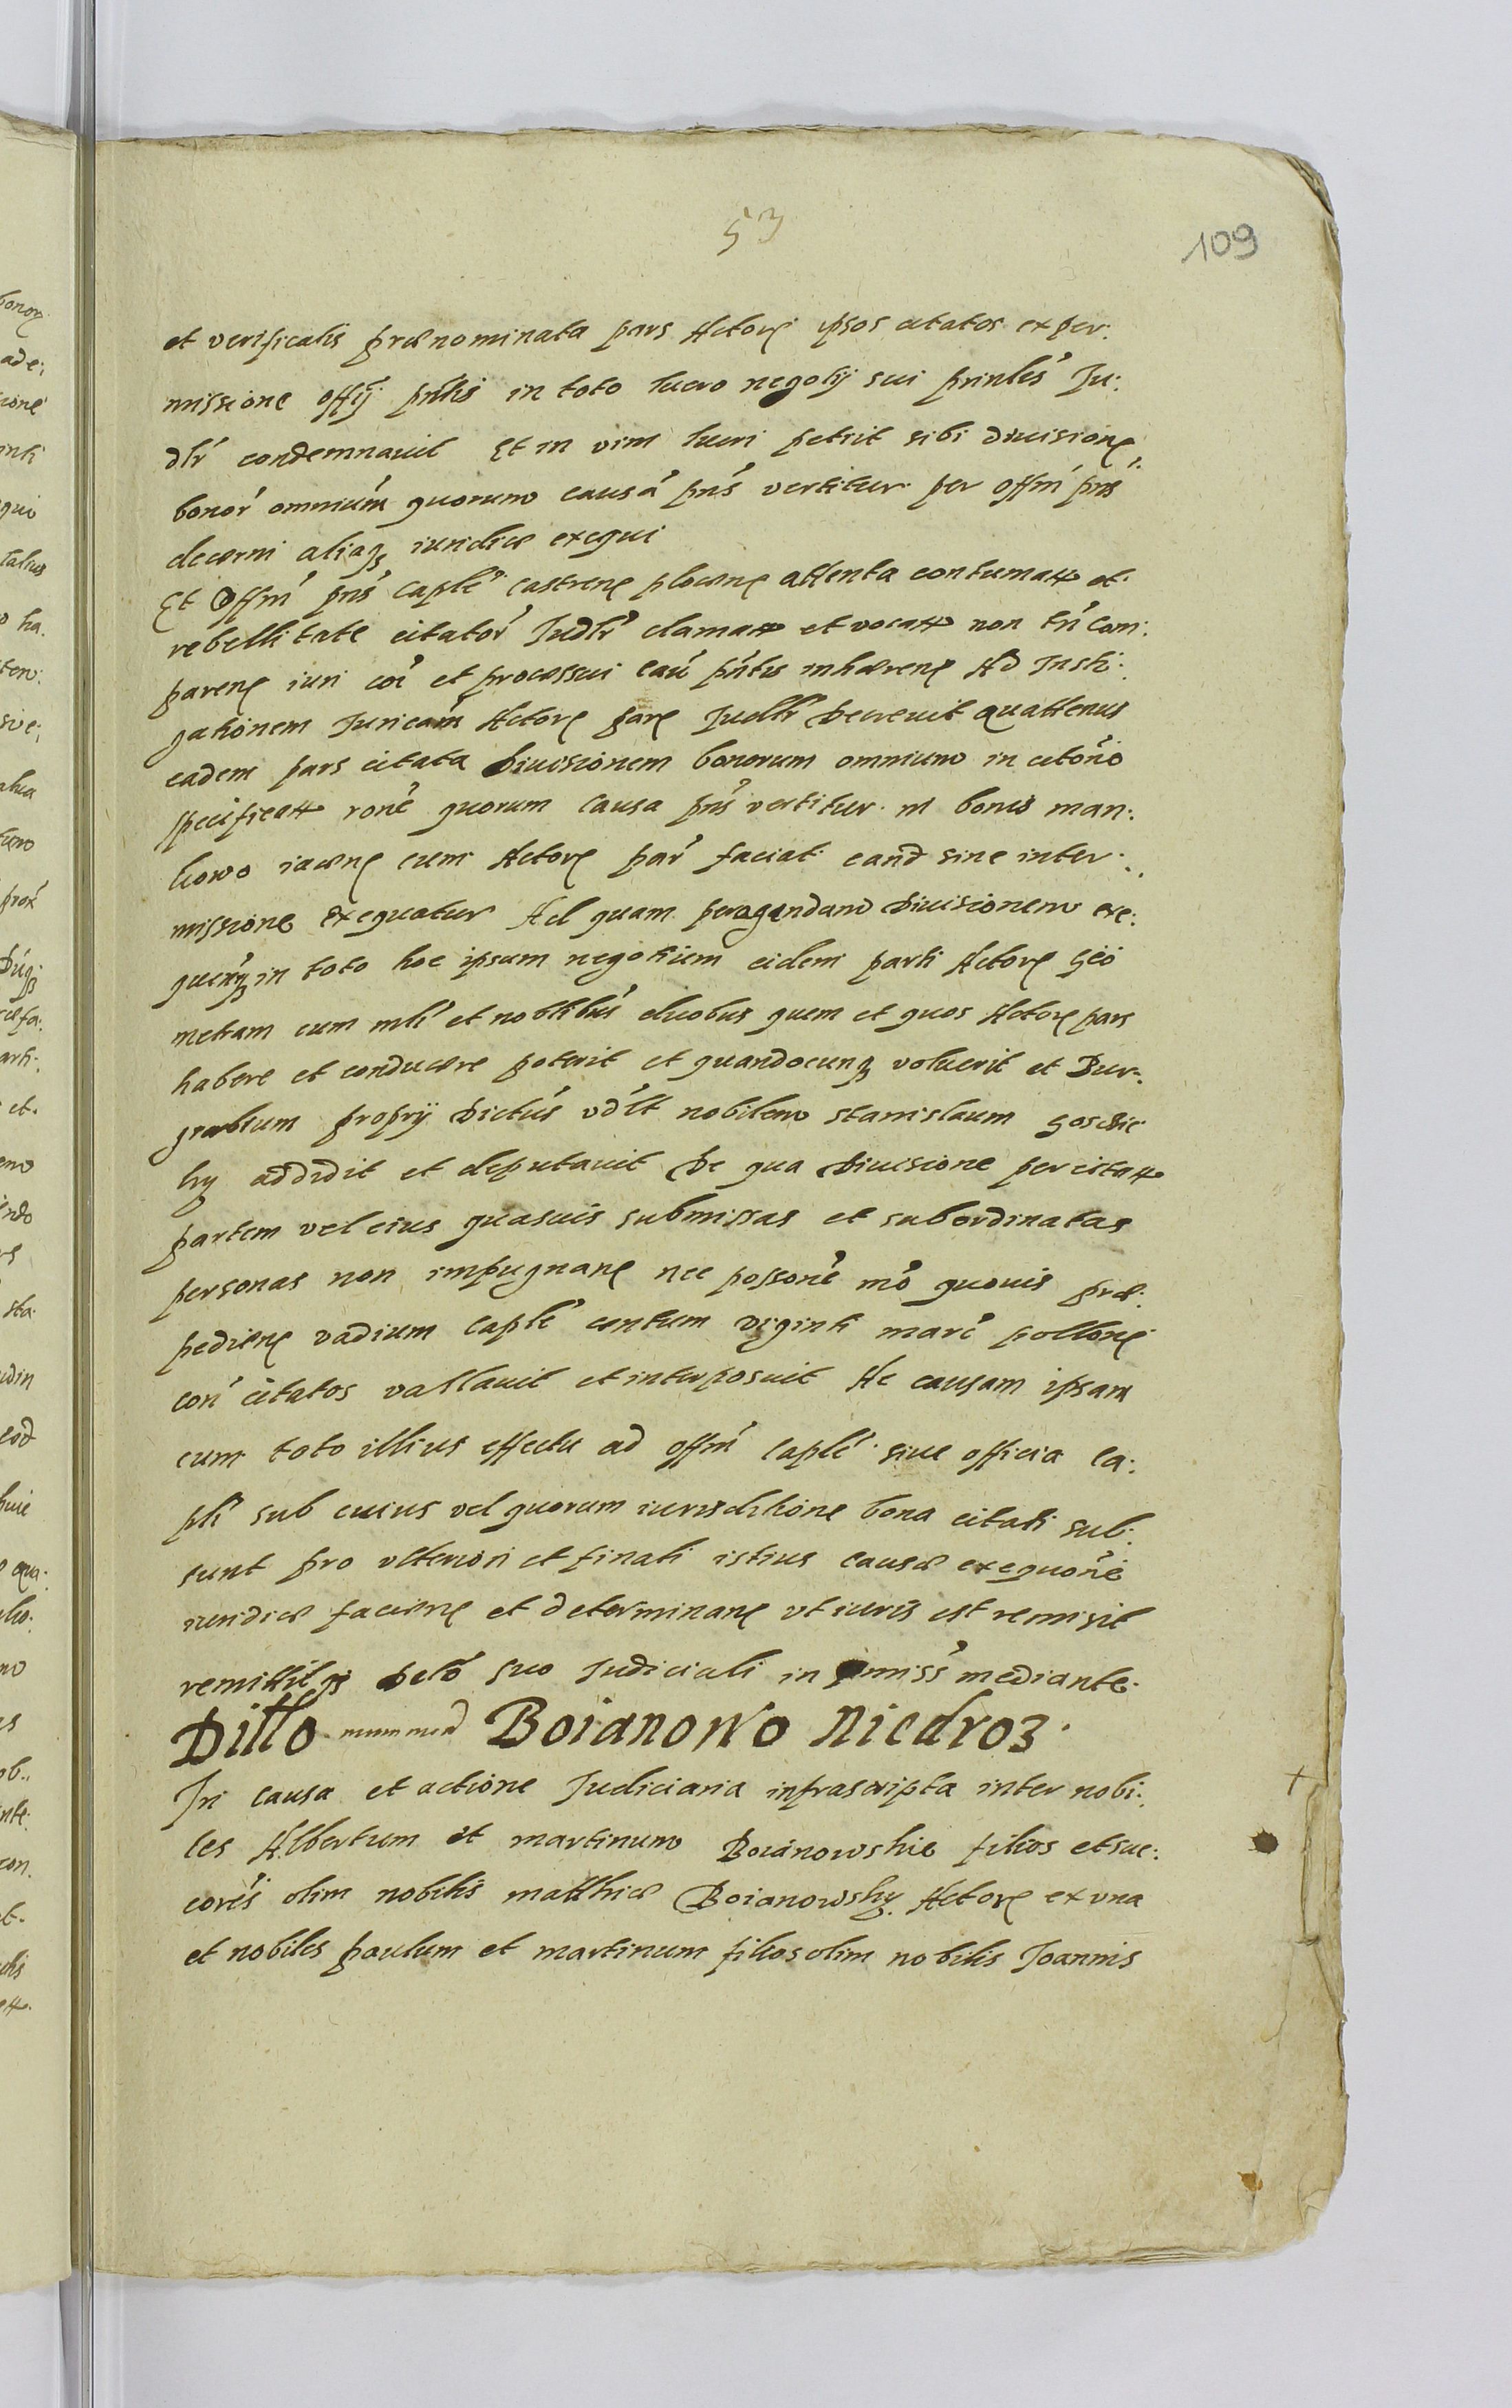 53
109
et verificatis prænominata pars Actore ipsos citatos ex per:
missione offij pntis in toto lucro negotij sui printes Ju:
dlr condemnavit Et in vim lucri petiit sibi divisione
bonor omnium quorum causa pns vertitur per offm pns
decerni aliaq iuridice exequi
Et Offm pns Caple Castrene plocene attenta contumatt et
rebellitate citator Judlr clamatt et vocatt non tn Com:
parene iuri coi et processui cau pntis inhærene Ad Insti:
gationem Juricam Actore pare Judlr Decrevit quattenus
eadem pars citata Divisionem bonorum omnium in citono
specificatt rone quorum Causa pns vertitur in bonis man:
kowo iacene cum Actore par faciat eand sine inter:
missione exequatur Ad quam peragendam Divisionem exe:
quenq in toto hoc ipsum negotium eidem parti Actore Geo
metram cum mli et noblibus duobus quem et quos Actore pars
habere et conducere poterit et quandocunq voluerit et Bur:
grabium proprij Dictus vdlt nobilem Stanislaum
ky addidit et deputavit De qua Divisione per citatt
partem vel eius quasuis submissas et subordinatas
personas non impugnane nec possone mo quovis præ:
pediene vadium Caple centum viginti marc pollone
con citatos vallavit et interposuit Ac causam ipsam
cum toto illius effectu ad offm Caple sive officia Ca:
pli sub cuius vel quorum iurisditione bona citati sub:
sunt pro ulteriori et finali istius causæ exequone
iuridice faciene et determinane ut iuris est remisit
remittitq Delo suo Judiciali in pmiss mediante.
Ditto Boianowo Niedroz.
In causa et actione Judiciaria infrascripta inter nobi:
les Albertum et martinum Boianowskie filios et suc:
cores olim nobilis matthiæ Boianowsky Actore ex una
et nobiles paulum et martinum filios olim nobilis Joannis